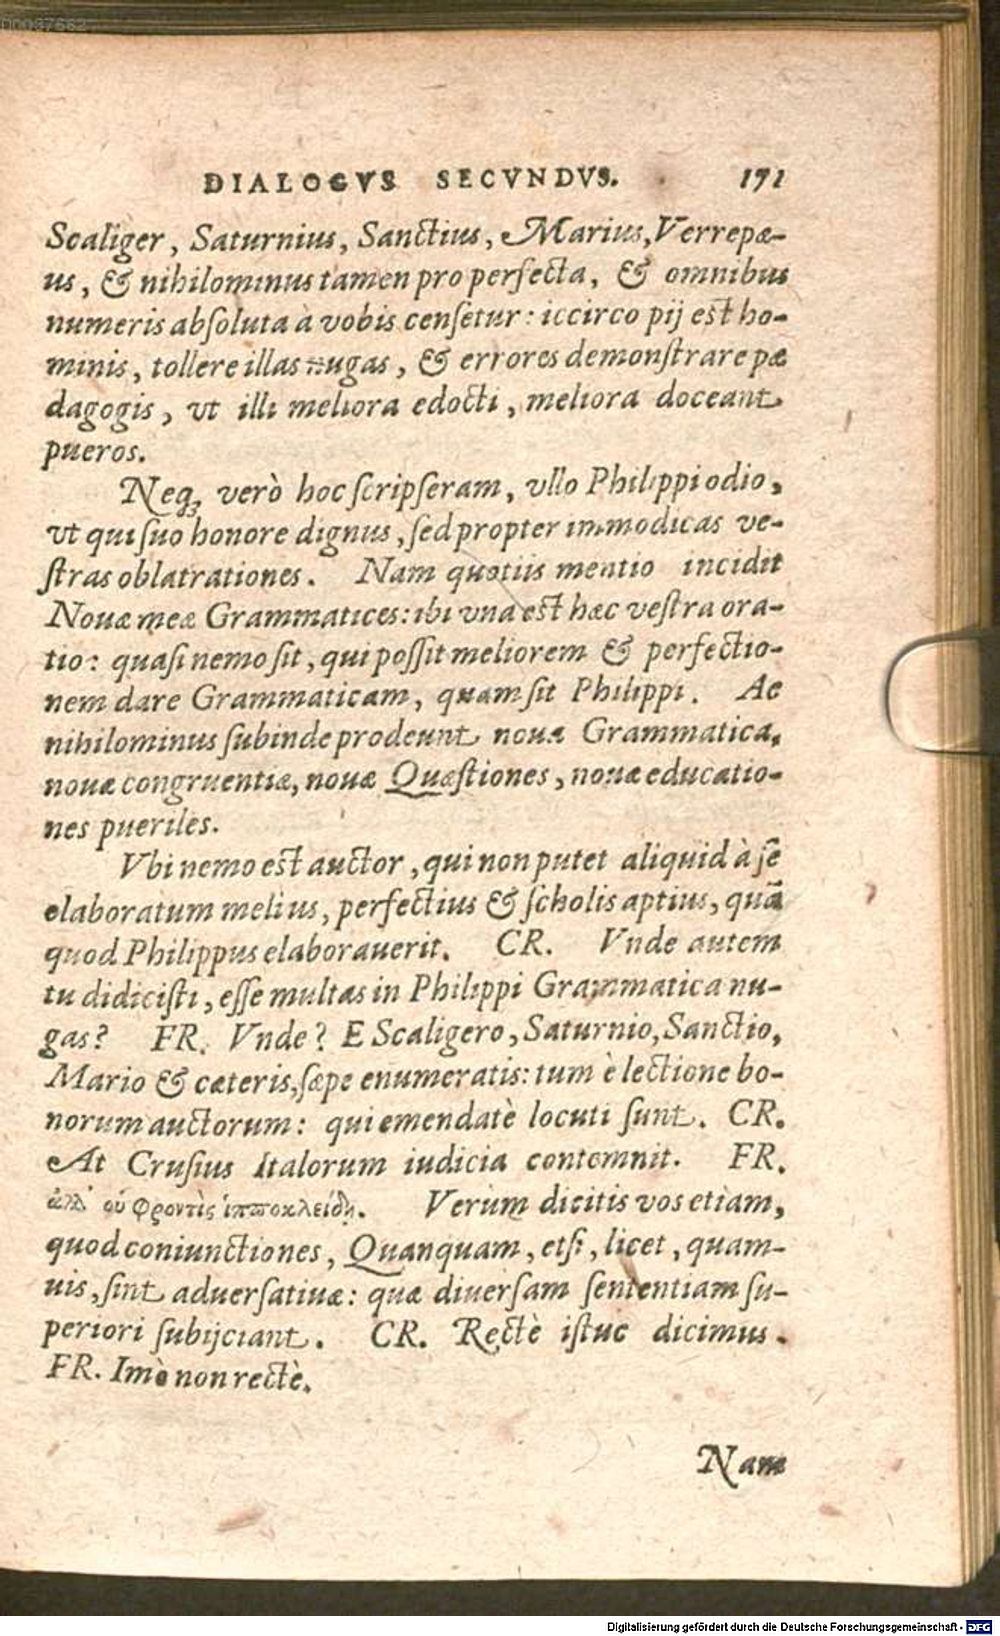 DIALOGVS SECVNDVS. 171
Scaliger, Saturnius, Sanctius, Marius, Verrepæ-
us, & nihilominus tamen pro perfecta, & omnibus
numeris absoluta à vobis censetur: iccirco pij est ho-
minis, tollere illas nugas, & errores demonstrare pæ
dagogis, vt illi meliora edocti, meliora doceant
pueros.
Neq; verò hoc scripseram, vllo Philippi odio,
vt qui suo honore dignus, sed propter immodicas ve-
stras oblatrationes. Nam quotiis mentio incidit
Nouæ meæ Grammatices: ibi vna est hæc vestra ora-
tio: quasi nemo sit, qui possit meliorem & perfectio-
nem dare Grammaticam, quam sit Philippi. Ac
nihilominus subinde prodeunt nouæ Grammatica,
nouæ congruentiæ, nouæ Quæstiones, nouæ educatio-
nes pueriles.
Vbi nemo est auctor, qui non putet aliquid à se
elaboratum melius, perfectius & scholis aptius, quã
quod Philippus elaborauerit. CR. Vnde autem
tu didicisti, esse multas in Philippi Grammatica nu-
gas? FR. Vnde? E Scaligero, Saturnio, Sanctio,
Mario & cæteris, sæpe enumeratis: tum è lectione bo-
norum auctorum: qui emendatè locuti sunt. CR.
At Crusius Italorum iudicia contemnit. FR.
ἀλλ' οὐ φροντὶς ἱπποκλείδῃ. Verùm dicitis vos etiam,
quod coniunctiones, Quanquam, etsi, licet, quam-
uis, sint aduersatiuæ: quæ diuersam sententiam su-
periori subijciant. CR. Rectè istuc dicimus.
FR. Imò non rectè.
Nam
D00037662
Digitalisierung gefördert durch die Deutsche Forschungsgemeinschaft - DFG